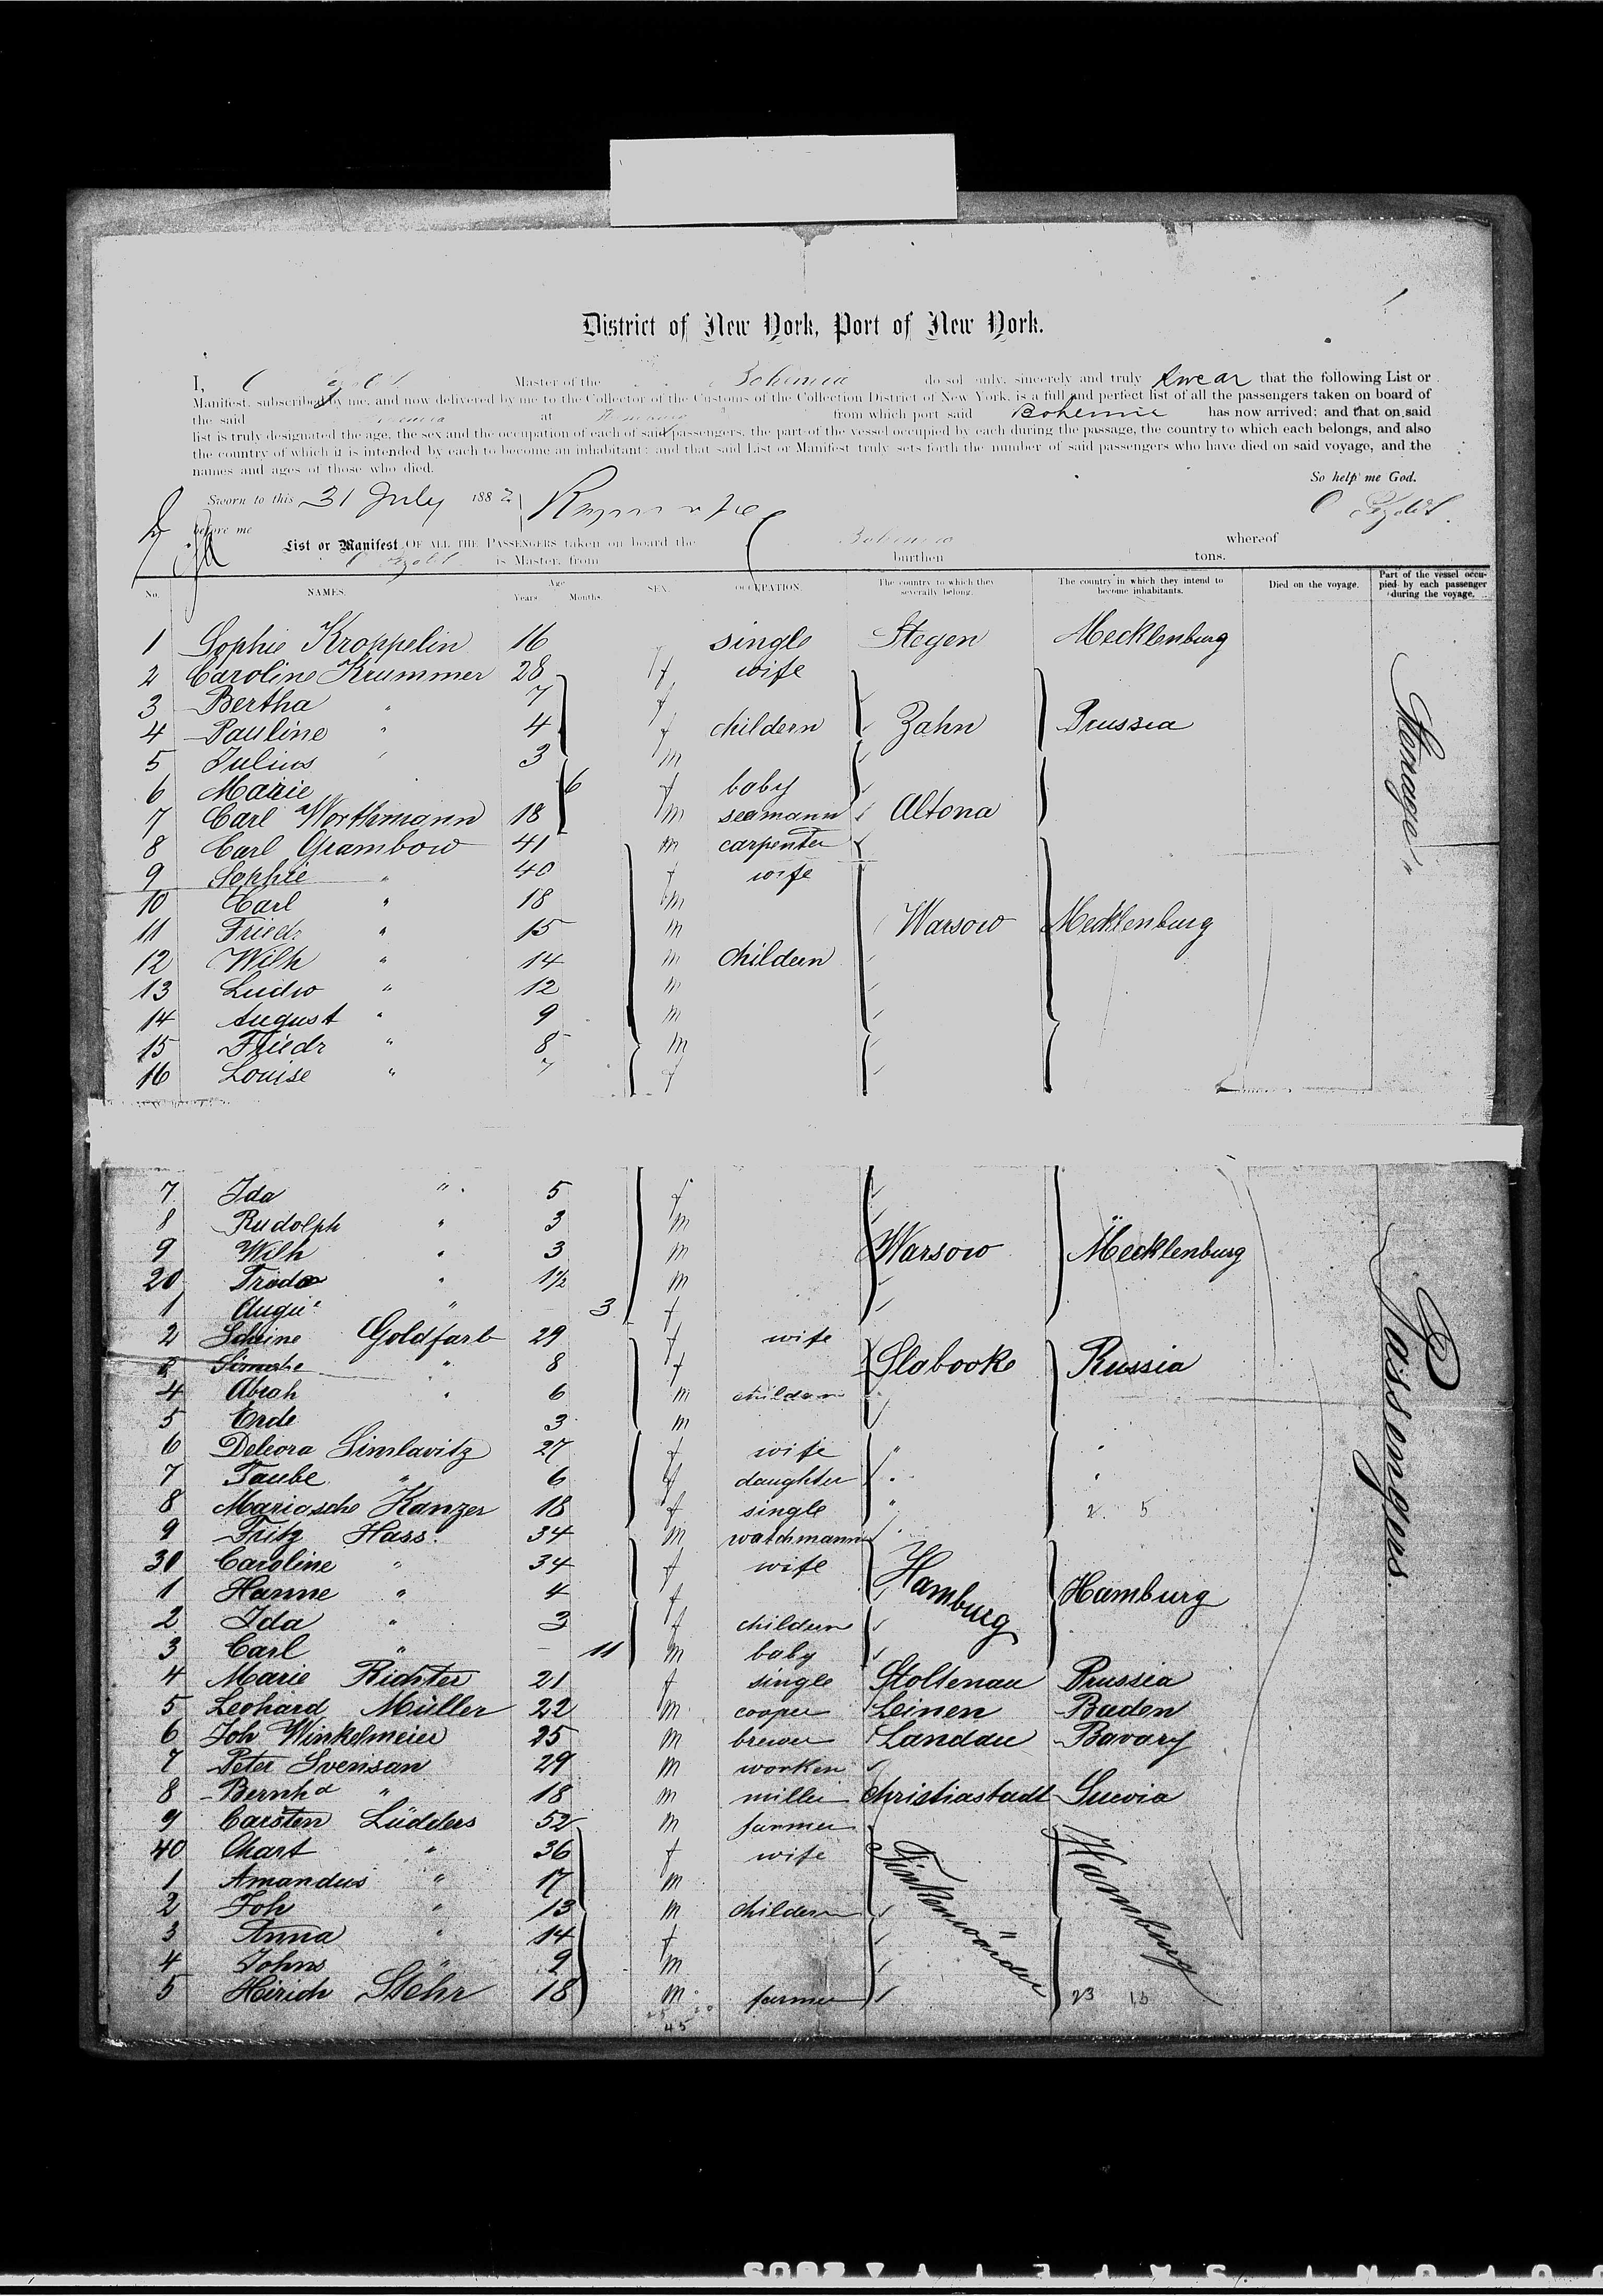 District of New York, Port of New York.
I, Master of the Bohemia do solemnly, sincerely and truly swear that the following List or
Manifest, subscribed by me, and now delivered by me to the Collector of the Customs of the Collection District of New York, is a full and perfect list of all the passengers taken on board of
the said at from which port said Bohemia has now arrived; and that on said
list is truly designated the age, the sex and the occupation of each of said passengers, the part of the vessel occupied by each during the passage, the country to which each belongs, and also
the country of which it is intended by each to become an inhabitant; and that said List or Manifest truly sets forth the number of said passengers who have died on said voyage, and the
names and ages of those who died.
So help me God.
Sworn to this 31 July 1882
before me
List or Manifest OF ALL THE PASSENGERS taken on board the Bohemia whereof
is Master, from burthen tons.
No. NAMES. Age Years. Months. SEX. OCCUPATION. The country to which they severally belong. The country in which they intend to become inhabitants. Died on the voyage. Part of the vessel occupied by each passenger during the voyage.
1 Sophie Kroppelin 16 single Stegen Mecklenburg
2 Caroline Krummer 28 f wife
3 Bertha " 7 f
4 Pauline " 4 f childern Zahn Prussia
5 Julius " 3 m
6 Marie 6 f baby
7 Carl Worthmann 18 m seamann Altona
8 Carl Grambow 41 m carpenter
9 Sophie " 40 f wife
10 Carl " 18 m
11 Friedr " 15 m Warsow Mecklenburg
12 Wilh " 14 m childern
13 Ludw " 12 m
14 August " 9 m
15 Friedr " 8 m
16 Louise " 7 f
7 Ida " 5 f
8 Rudolph " 3 m
9 Wilh " 3 m Warsow Mecklenburg
20 " 1½ m
1 " 3 f
2 Scheine Goldfarb 29 f wife
3 " 8 f Slabooke Russia
4 Abrah " 6 m childern
5 Erde 3 m
6 Debora Simlavitz 27 f wife " "
7 Taube " 6 f daughter " "
8 Mariasche Kanzer 18 f single " 2 5
9 Fritz Hass 34 m watchmann
30 Caroline " 34 f wife Hamburg
1 Hanne " 4 f Hamburg
2 Ida " 3 f childern
3 Carl " — 11 m baby
4 Marie Richter 21 f single Stoltenau Prussia
5 Leohard Müller 22 m cooper Leinen Baden
6 Joh Winkelmeier 25 m brewer Landau Bavary
7 Peter Svensan 29 m worken
8 Bernhd " 18 m miller Christiastadt Suevia
9 Carsten Lüdders 52 m farmer
40 Chart " 36 f wife Finkenwärder Hamburg
1 Amandus " 17 m
2 Joh " 13 m childern
3 Anna " 14 f
4 Johns " 9 m
5 Heirich Stehr 18 m farmer 23 15
45
Steerage Passengers